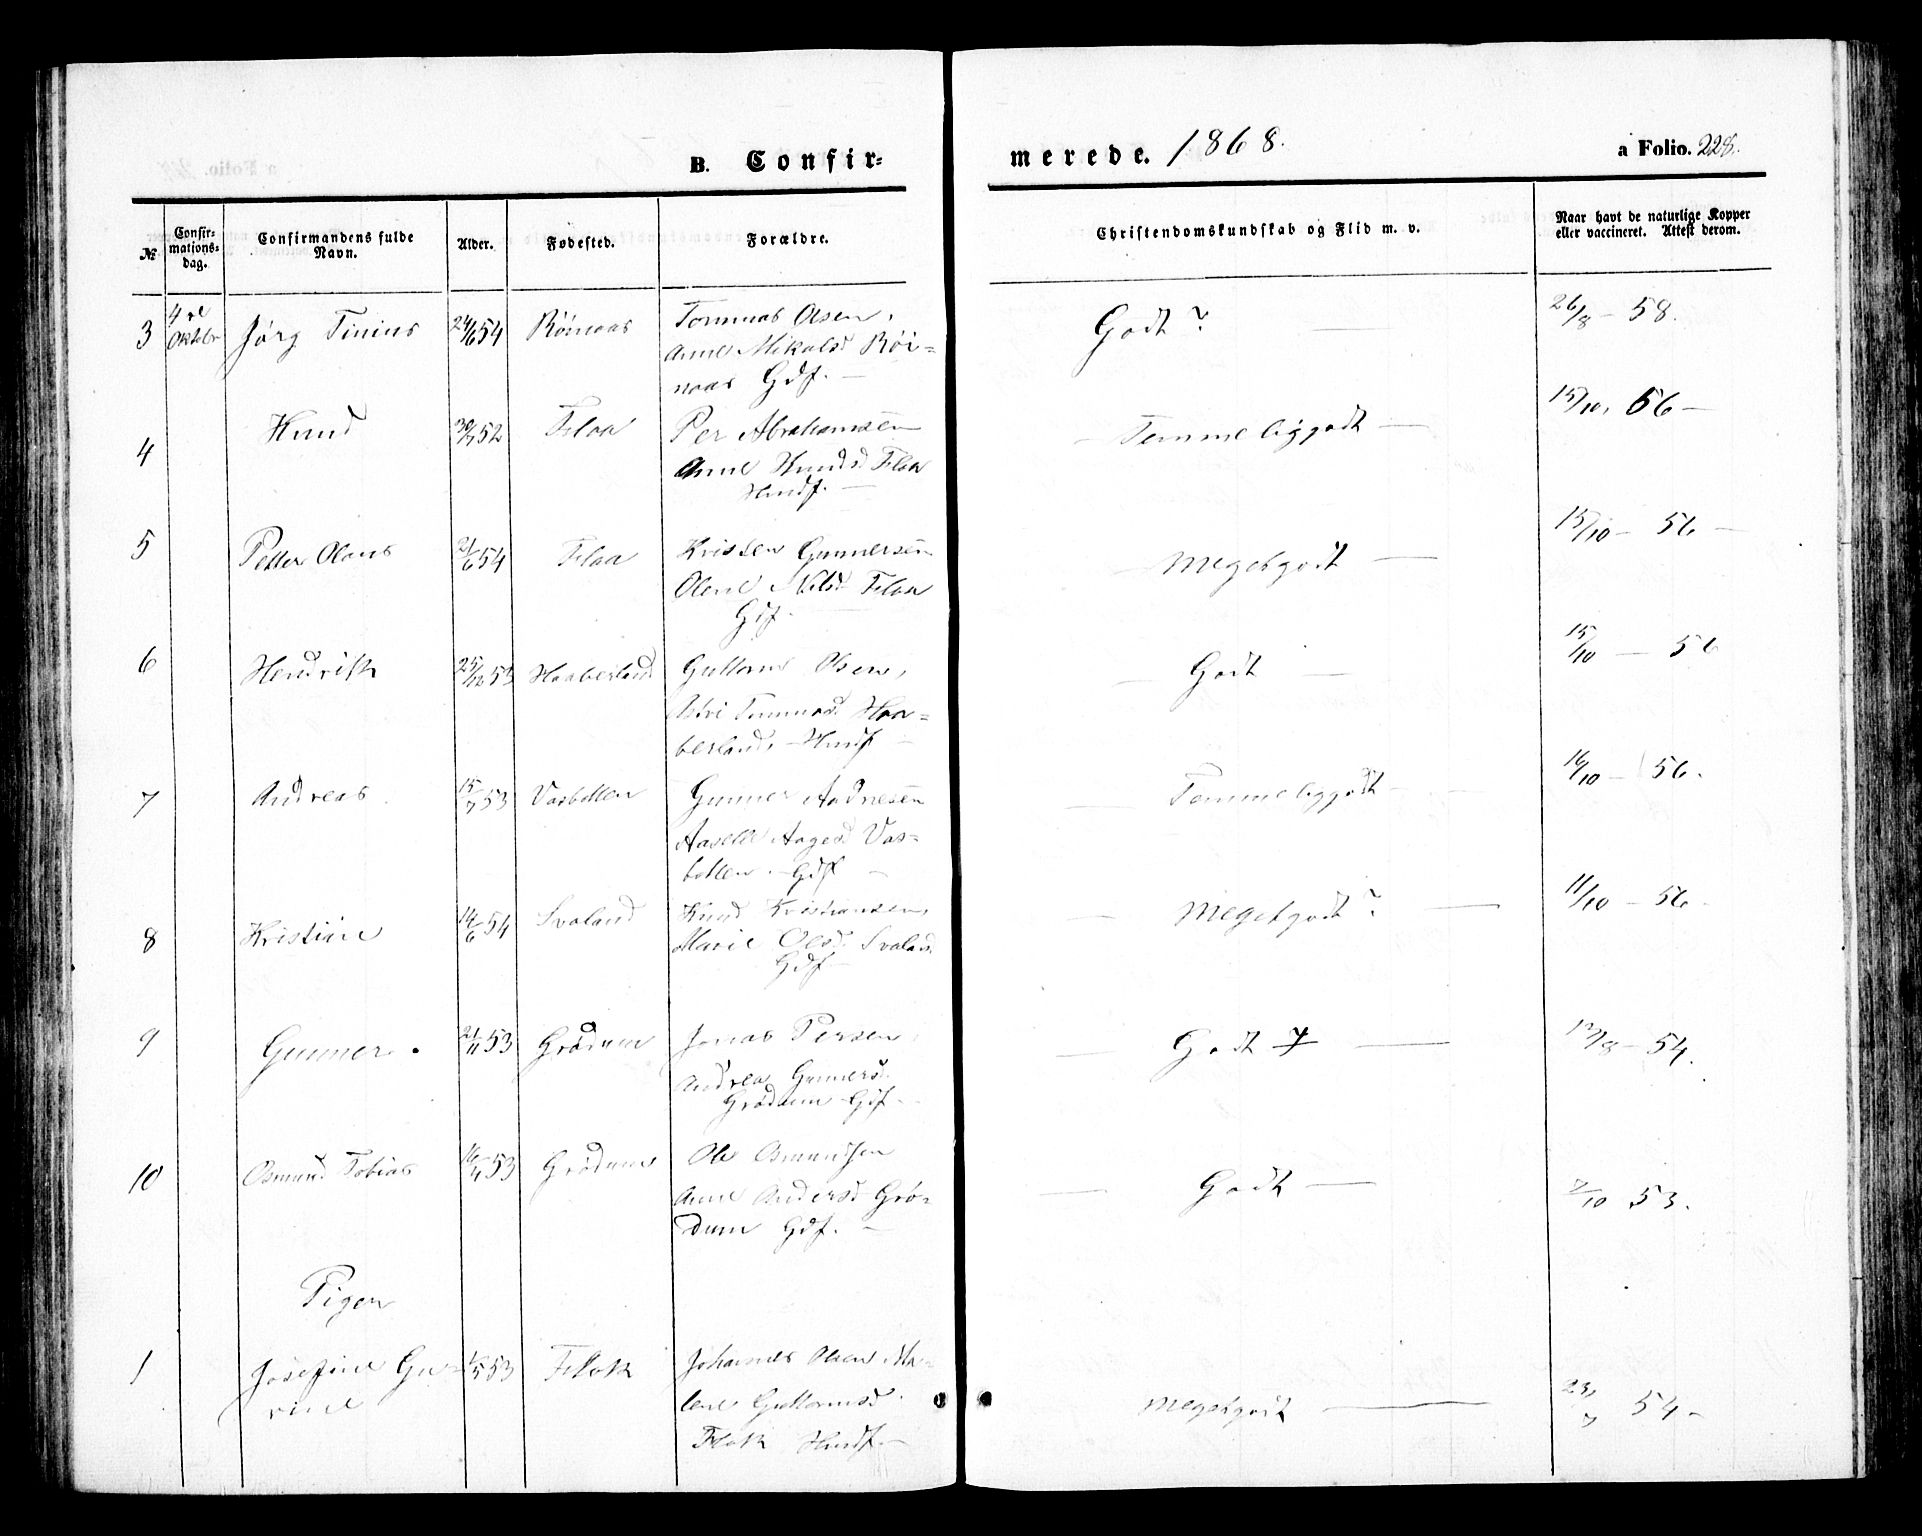 B. Confir=
merede. 1868.
a Folio. 228.
№
Confir-
mations-
dag.
Confirmandens fulde
Navn.
Alder.
Fødested.
Forældre.
Christendomskundskab og Flid m. v.
Naar havt de naturlige Kopper
eller vaccineret. Attest derom.
3 4de Oktobr Jørg Tinius 24/6 54 Røinaas Tommas Olsen,
Anne Mikalsd Røi=
naas Gdf. —
Godt ? —
26/8 — 58.
4 Knud 30/7 52 Flaa Per Abrahamsen
Anne Knudsd Flaa
Husf. —
— Temmeliggodt —
15/10. 56 —
5 Petter Olaus 21/6 54 Flaa Kristen Gunnersen
Olene Nilsd Flaa
Gdf.
— Megetgodt —
15/10 — 56 —
6 Hendrik 25/12 53 Haaberland Guttorm Olsen,
Tommasd. Haa=
berland, Husf —
— Godt —
15/10 — 56
7 Andreas 15/7 53 Vasbotten Gunner Aadnesen
Aaselle Aagesd Vas=
botten. Gdf —
— Temmeliggodt —
16/10 — 56.
8 Kristian 14/6 54 Svaland Knud Kristiansen,
Marie Olsd. Svaland.
Gdf —
— Megetgodt ? —
11/10 — 56 -
9 Gunner. 21/11 53 Grødum Jonas Persen,
Andrea Gunnersd.
Grødum Gdf. -
— Godt —
12/8 — 54.
10 Osmund Tobias 16/4 53 Grødum Ole Osmundsen
Anne Andersd Grø-
dum Gdf. —
— Godt —
7/10 53.
Piger
1 Josefine Gu-
rine
53 Flak Johannes Olsen Ma-
lene Guttormsd.
Flak Husf. —
Megetgodt —
23/7 54 -